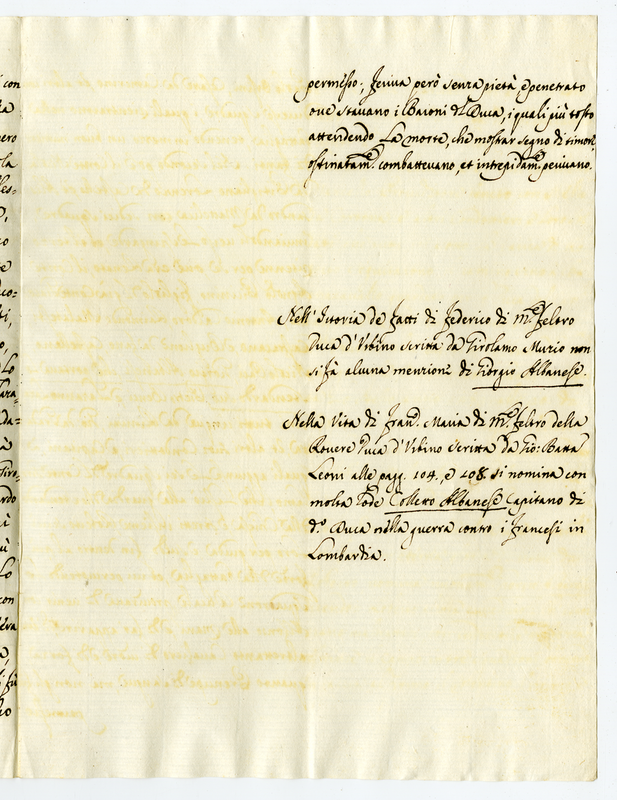 permesso; feriva però senza pietà, e penetrato
ove stavano i Baroni del Duca, i quali più tosto
attendendo La morte, che mostrar segno di timore
ostinatam.e combattevano, et intrepidam.e perivano.
Nell' Istoria de fatti di Federico di M.e Feltro
Duca d'Urbino scritta da Girolamo Muzio non
si fà alcuna menzione di Giorgio Albanese.
Nella Vita di Fran.o Maria di M.e Feltro della
Rovere Duca d'Urbino scritta da Gio: Batta
Leoni alle pagg. 104. e 108. si nomina con
molta Lode Colletto Albanese Capitano di
d.o Duca nella guerra contro i francesi in
Lombardia.